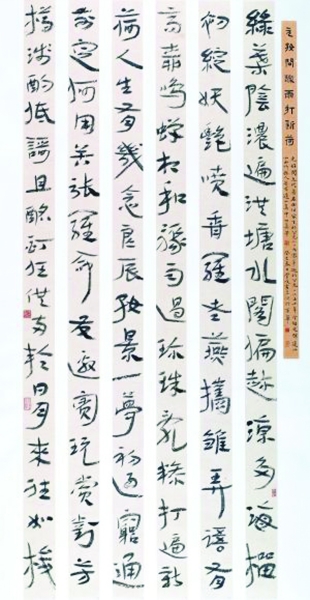 元好問驟雨打新荷
綠葉陰濃遍池塘水閣偏趁涼多海榴
初綻妖艷噴香羅老燕攜雛弄語有
高柳鳴蟬相和驟雨過珍珠亂糝打遍新
荷人生有幾念良辰美景一夢初過窮通
前定何用苦張羅命友邀賓玩賞對芳
樽淺酌低謌且酩酊任他兩輪日月來往如梭